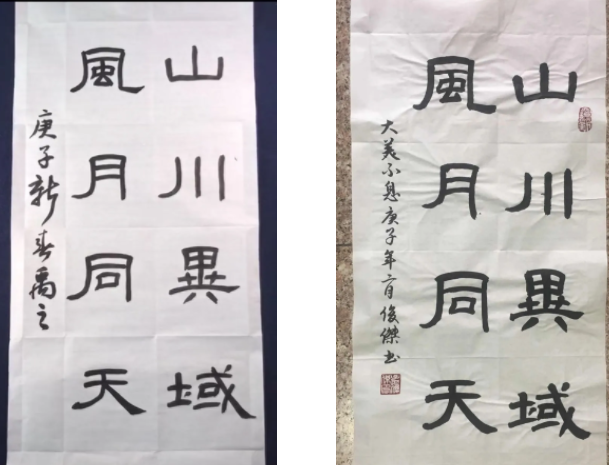 山川異域
風月同天
庚子新春禹之
山川異域
風月同天
大美不息庚子年二月俊傑书